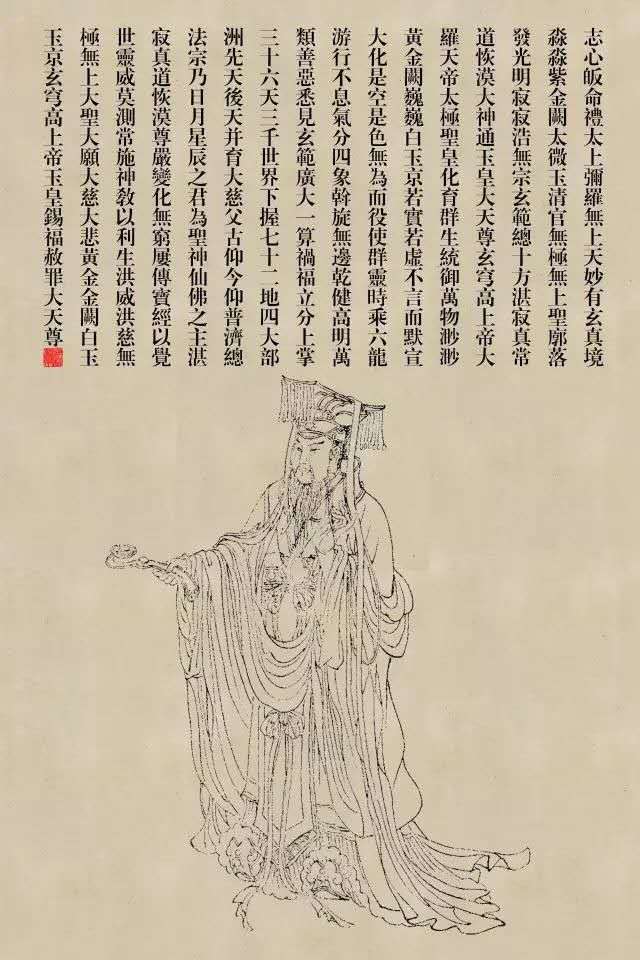 志心皈命禮太上彌羅無上天妙有玄真境
淼淼紫金闕太微玉清宮無極無上聖廓落
發光明寂寂浩無宗玄範總十方湛寂真常
道恢漠大神通玉皇大天尊玄穹高上帝大
羅天帝太極聖皇化育群生統御萬物渺渺
黃金闕巍巍白玉京若實若虛不言而默宣
大化是空是色無為而役使群靈時乘六龍
游行不息氣分四象斡旋無邊乾健高明萬
類善惡悉見玄範廣大一算禍福立分上掌
三十六天三千世界下握七十二地四大部
洲先天後天并育大慈父古仰今仰普濟總
法宗乃日月星辰之君為聖神仙佛之主湛
寂真道恢漠尊嚴變化無窮屢傳寶經以覺
世靈威莫測常施神教以利生洪威洪慈無
極無上大聖大願大慈大悲黃金金闕白玉
玉京玄穹高上帝玉皇錫福赦罪大天尊